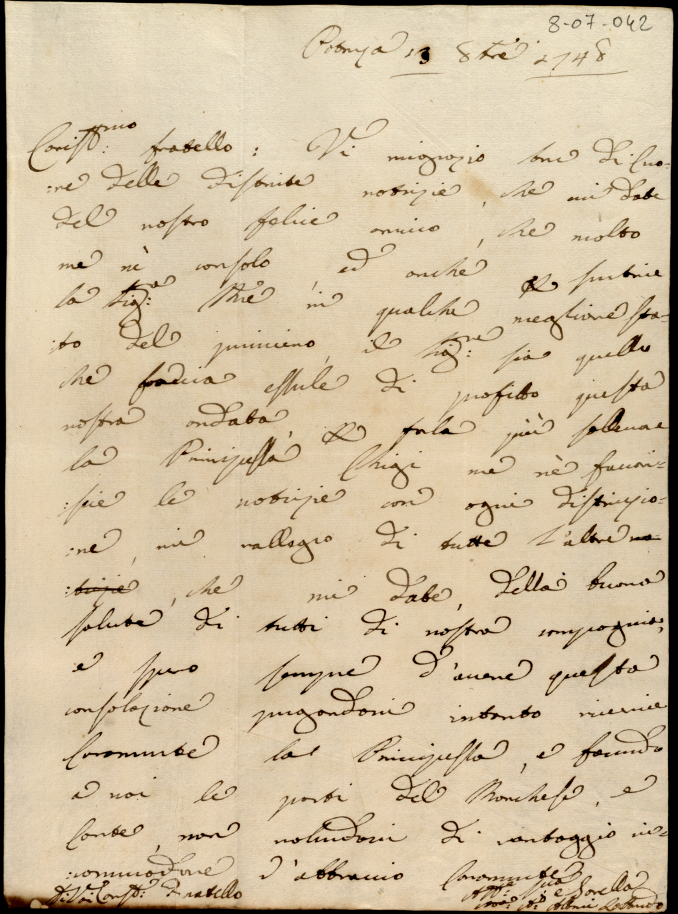 8-07-042
13 8bre 1748
Cariss:mo fratello: Vi ringrazio ben di Cuo-
:re delle distinte notizie, che mi date
del nostro felice arrivo, che molto
me nè consolo, ed anche
la Sig:ra in qualche megliore sta-
:to del primiero, il Sig:re sia quello
che faccia essule di profitto questa
nostra andata, fula più sollevare
la Principessa Chigi me nè favori-
:sce le notizie con ogni distinzio-
:ne, mi rallegro di tutte l'altre
che mi date, della buona
salute di tutti di nostra compagnia,
e spero sempre d'avere questa
consolazione pregandovi intanto riverire
Caramente la Principessa, e facendo
a voi le parti del Marchese, e
Conte, non volendovi di vantaggio in-
:commodare d'abbraccio Caramente
Di Voi Cariss:mo Fratello
Sorella